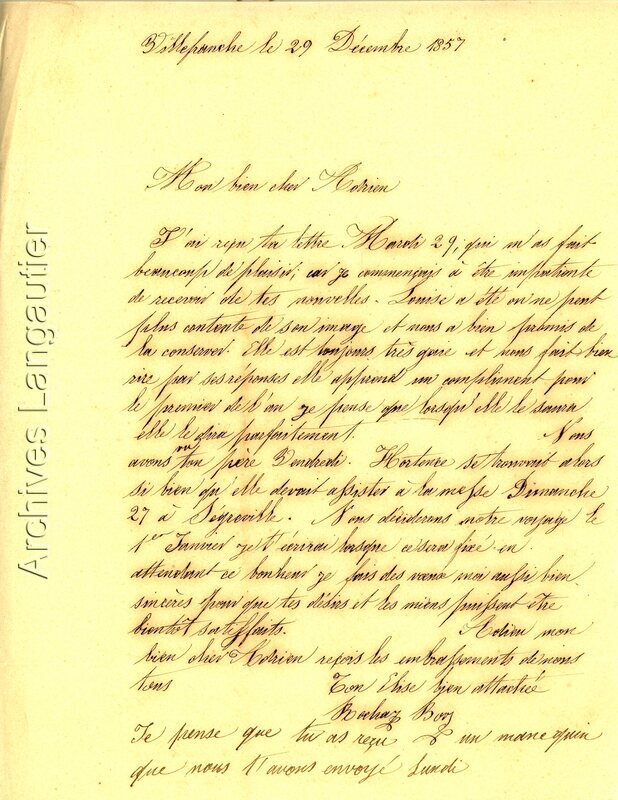 Villefranche le 29 Décembre 1857
Mon bien cher Adrien
J'ai reçu ta lettre Mardi 29, qui m'as fait
beaucoup de plaisir, car je commençais à être impatiente
de recevoir de tes nouvelles. Louise a été on ne peut
plus contente de son image et nous a bien promis de
la conserver. Elle est toujours très gaie et nous fait bien
rire par ses réponses elle apprend un compliment pour
le premier de l'an je pense que lorsqu'elle le saura
elle le dira parfaitement. Nous
avons vu ton père Vendredi. Hortence se trouvait alors
si bien qu'elle devait assister à la messe Dimanche
27 à Ségreville. Nous déciderons notre voyage le
1er Janvier je t'écrirai lorsque ce sera fixé en
attendant ce bonheur je fais des vœux moi aussi bien
sincères pour que tes désirs et les miens puissent être
bientôt satisffaits. Adieu mon
bien cher Adrien reçois les embrassements de nous
tous Ton Elise bien attachée
Je pense que tu as reçu un manequin
que nous t'avons envoyé Lundi
Archives Langautier